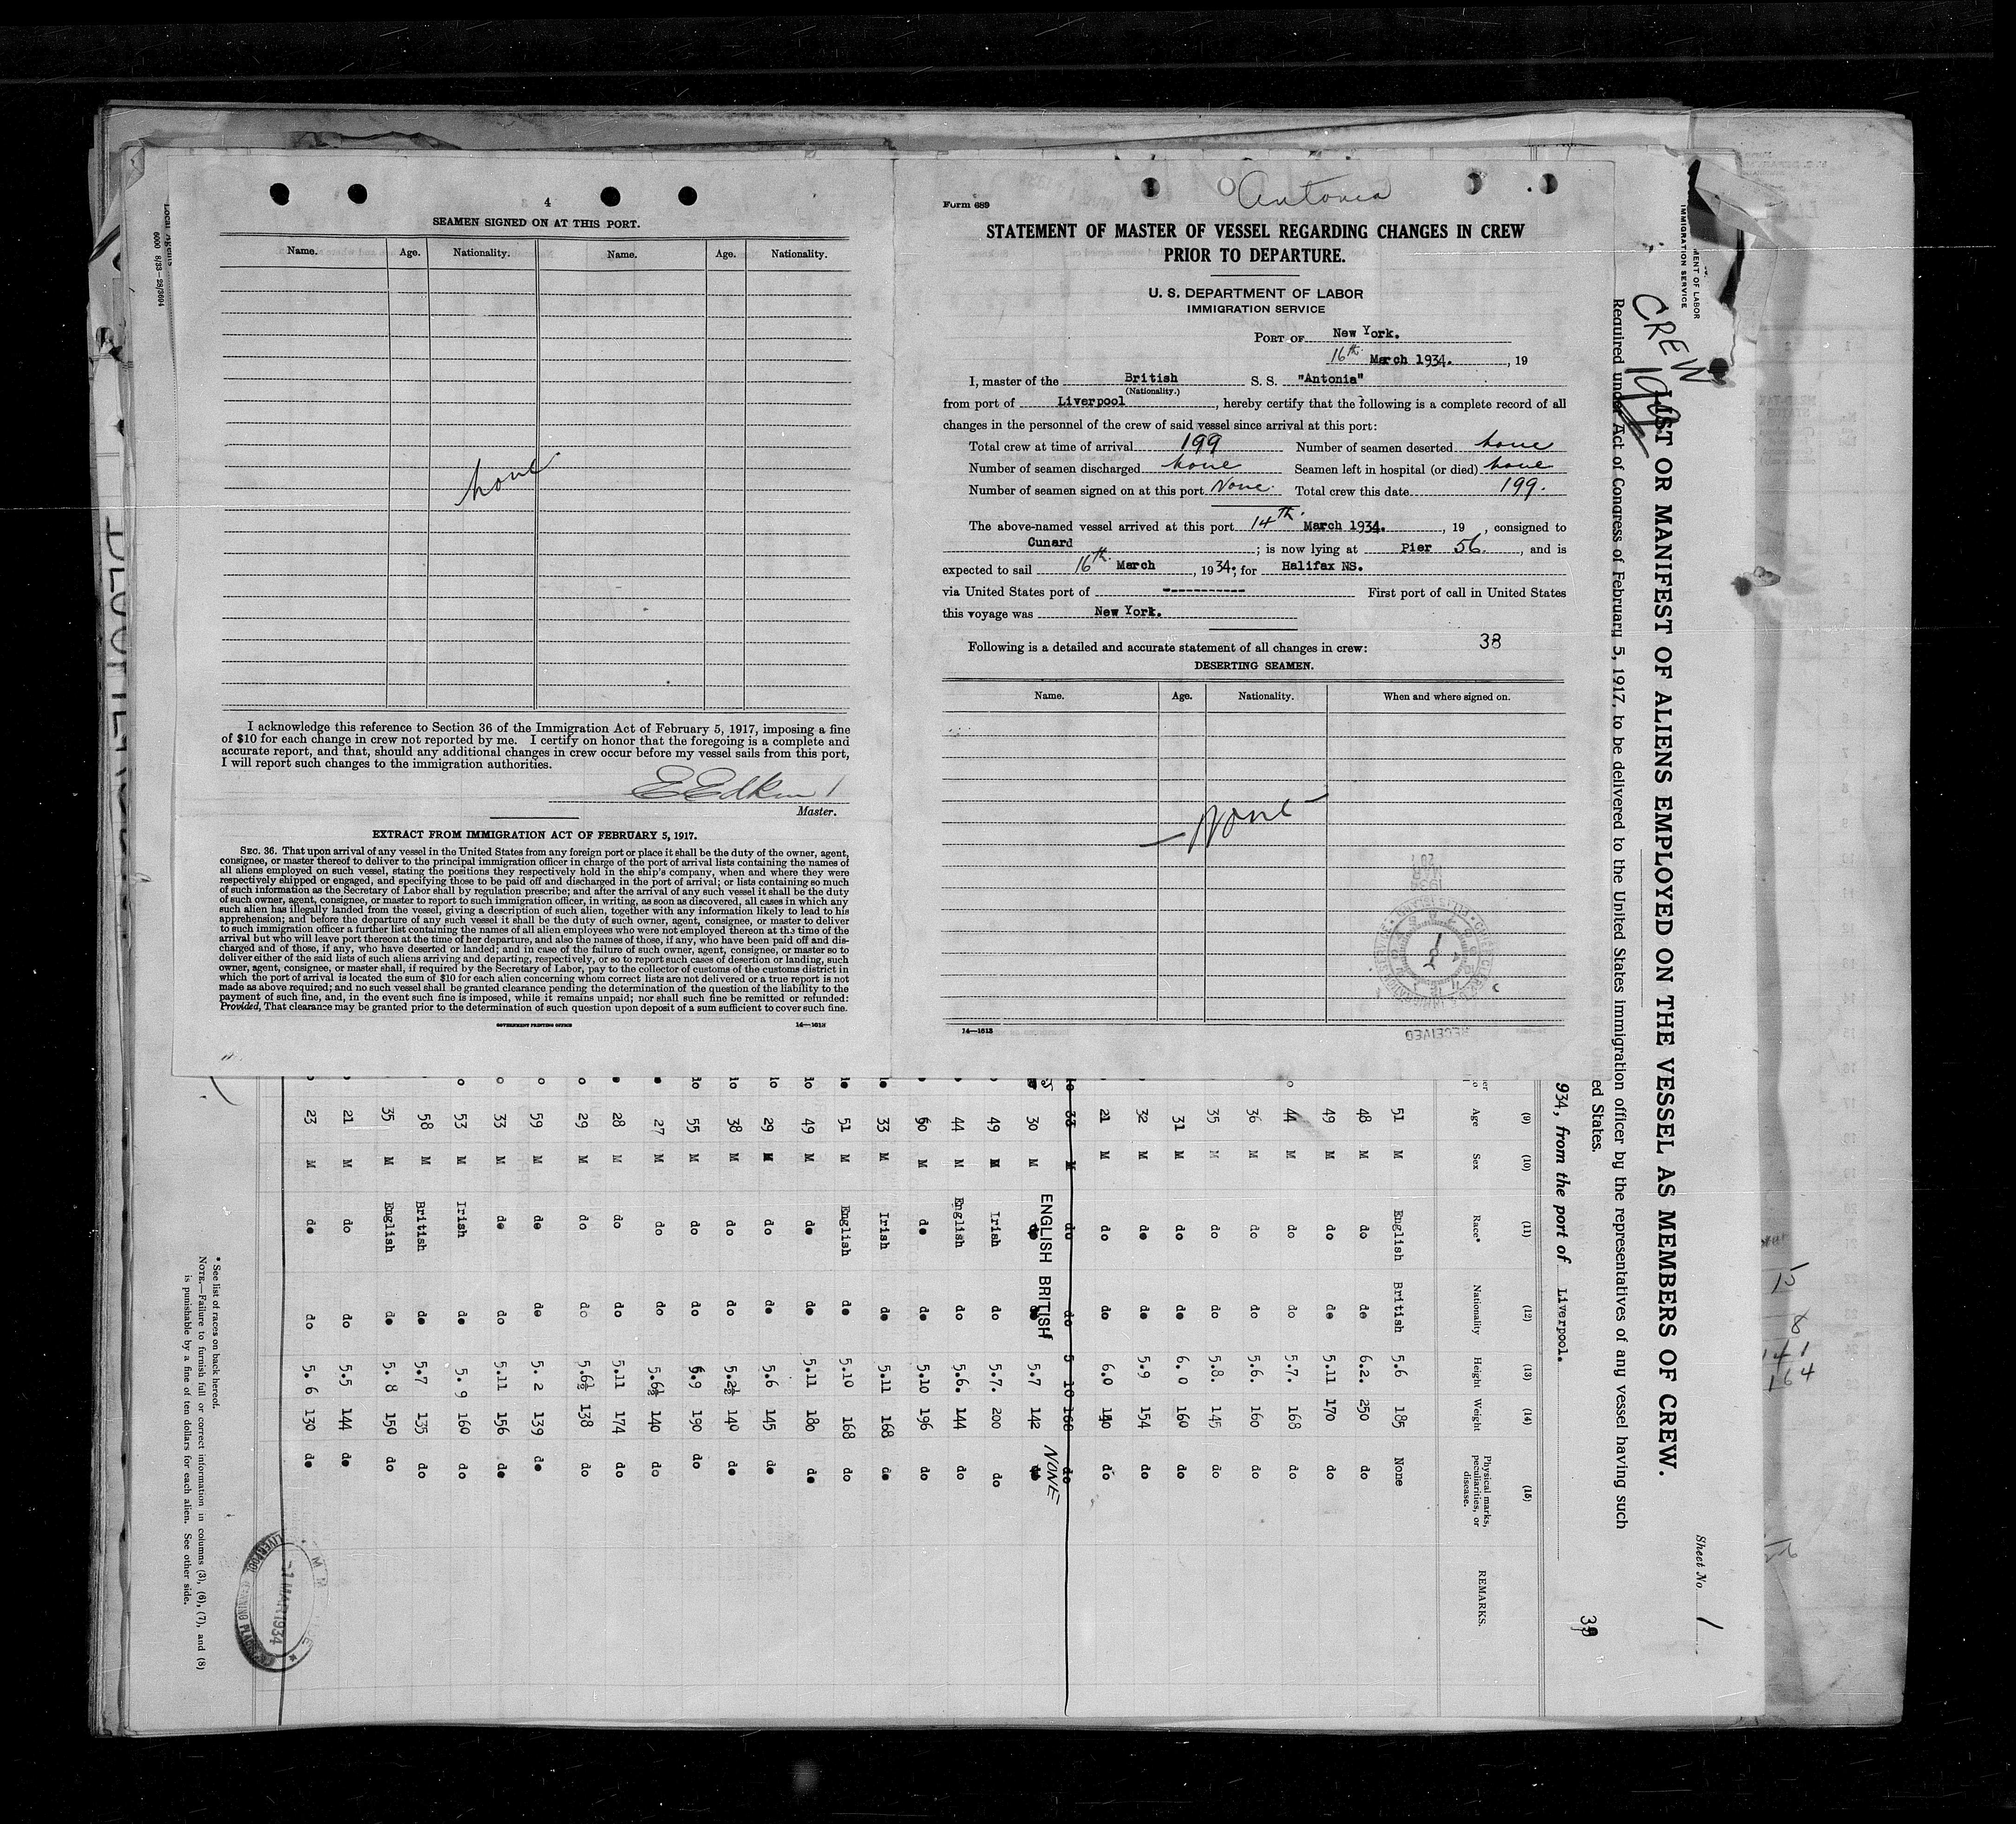 4
SEAMEN SIGNED ON AT THIS PORT.
Name. Age. Nationality. Name. Age. Nationality.
none
I acknowledge this reference to Section 36 of the Immigration Act of February 5, 1917, imposing a fine
of $10 for each change in crew not reported by me. I certify on honor that the foregoing is a complete and
accurate report, and that, should any additional changes in crew occur before my vessel sails from this port,
I will report such changes to the immigration authorities.
Master.
EXTRACT FROM IMMIGRATION ACT OF FEBRUARY 5, 1917.
SEC. 36. That upon arrival of any vessel in the United States from any foreign port or place it shall be the duty of the owner, agent,
consignee, or master thereof to deliver to the principal immigration officer in charge of the port of arrival lists containing the names of
all aliens employed on such vessel, stating the positions they respectively hold in the ship's company, when and where they were
respectively shipped or engaged, and specifying those to be paid off and discharged in the port of arrival; or lists containing so much
of such information as the Secretary of Labor shall by regulation prescribe; and after the arrival of any such vessel it shall be the duty
of such owner, agent, consignee, or master to report to such immigration officer, in writing, as soon as discovered, all cases in which any
such alien has illegally landed from the vessel, giving a description of such alien, together with any information likely to lead to his
apprehension; and before the departure of any such vessel it shall be the duty of such owner, agent, consignee, or master to deliver
to such immigration officer a further list containing the names of all alien employees who were not employed thereon at the time of the
arrival but who will leave port thereon at the time of her departure, and also the names of those, if any, who have been paid off and dis-
charged and of those, if any, who have deserted or landed; and in case of the failure of such owner, agent, consignee, or master so to
deliver either of the said lists of such aliens arriving and departing, respectively, or so to report such cases of desertion or landing, such
owner, agent, consignee, or master shall, if required by the Secretary of Labor, pay to the collector of customs of the customs district in
which the port of arrival is located the sum of $10 for each alien concerning whom correct lists are not delivered or a true report is not
made as above required; and no such vessel shall be granted clearance pending the determination of the question of the liability to the
payment of such fine, and, in the event such fine is imposed, while it remains unpaid; nor shall such fine be remitted or refunded:
Provided, That clearance may be granted prior to the determination of such question upon deposit of a sum sufficient to cover such fine.
GOVERNMENT PRINTING OFFICE 14—1613
Form 689
Antonia
STATEMENT OF MASTER OF VESSEL REGARDING CHANGES IN CREW
PRIOR TO DEPARTURE.
U. S. DEPARTMENT OF LABOR
IMMIGRATION SERVICE
PORT OF New York.
16th March 1934. , 19
I, master of the British S. S. "Antonia"
(Nationality.)
from port of Liverpool , hereby certify that the following is a complete record of all
changes in the personnel of the crew of said vessel since arrival at this port:
Total crew at time of arrival 199 Number of seamen deserted none
Number of seamen discharged none Seamen left in hospital (or died) none
Number of seamen signed on at this port None. Total crew this date 199.
The above-named vessel arrived at this port 14th March 1934. , 19 , consigned to
Cunard ; is now lying at Pier 56. , and is
expected to sail 16th March , 1934; for Halifax NS.
via United States port of ----------- First port of call in United States
this voyage was New York.
Following is a detailed and accurate statement of all changes in crew: 38
DESERTING SEAMEN.
Name. Age. Nationality. When and where signed on.
None
RECEIVED
14—1613
Sheet No. 1
MENT OF LABOR
IMMIGRATION SERVICE
CREW
199
LIST OR MANIFEST OF ALIENS EMPLOYED ON THE VESSEL AS MEMBERS OF CREW.
Required under Act of Congress of February 5, 1917, to be delivered to the United States immigration officer by the representatives of any vessel having such
ed States.
934, from the port of Liverpool.
(9) (10) (11) (12) (13) (14) (15)
Age Sex Race* Nationality Height Weight Physical marks, peculiarities, or disease. REMARKS.
51 M English British 5.6 185 None
48 M do do 6.2. 250 do
49 M do do 5.11 170 do
44 M do do 5.7. 168 do
36 M do do 5.6. 160 do
35 M do do 5.8. 145 do
31 M do do 6.0 160 do
32 M do do 5.9 154 do
21 M do do 6.0 do
33 M do do 5 10 168 do
30 M ENGLISH BRITISH 5.7 142 NONE
49 M Irish do 5.7. 200 do
44 M English do 5.6. 144 do
M do do 5.10 196 do
33 M Irish do 5.11 168 do
51 M English do 5.10 168 do
49 M do do 5.11 180 do
29 M do do 5.6 145 do
38 M do do 5.2½ 140 do
55 M do do 5.9 190 do
27 M do do 5.6½ 140 do
28 M do do 5.11 174 do
29 M do do 5.6½ 138 do
59 M do do 5. 2 139 do
33 M do do 5.11 156 do
53 M Irish do 5. 9 160 do
58 M British do 5.7 135 do
35 M English do 5. 8 150 do
21 M do do 5.5 144 do
23 M do do 5. 6 130 do
* See list of races on back hereof.
NOTE.—Failure to furnish full or correct information in columns (3), (6), (7), and (8)
is punishable by a fine of ten dollars for each alien. See other side.
-1 MAR 1934
LIVERPOOL
Local Agents
6000 8/33—28/3604
15
8
141
164